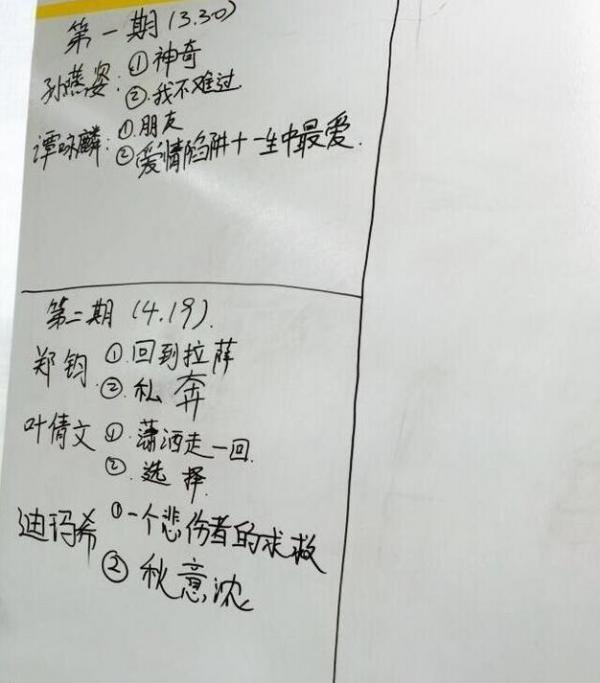 第一期(3.30)
孙燕姿:①神奇
②.我不难过
谭咏麟:①.朋友
②爱情陷阱十一生中最爱.
第二期(4.19).
郑钧 ①.回到拉萨
②.私奔
叶倩文 ①.潇洒走一回.
②.选择.
迪玛希 ①一个悲伤者的求救
②秋意浓